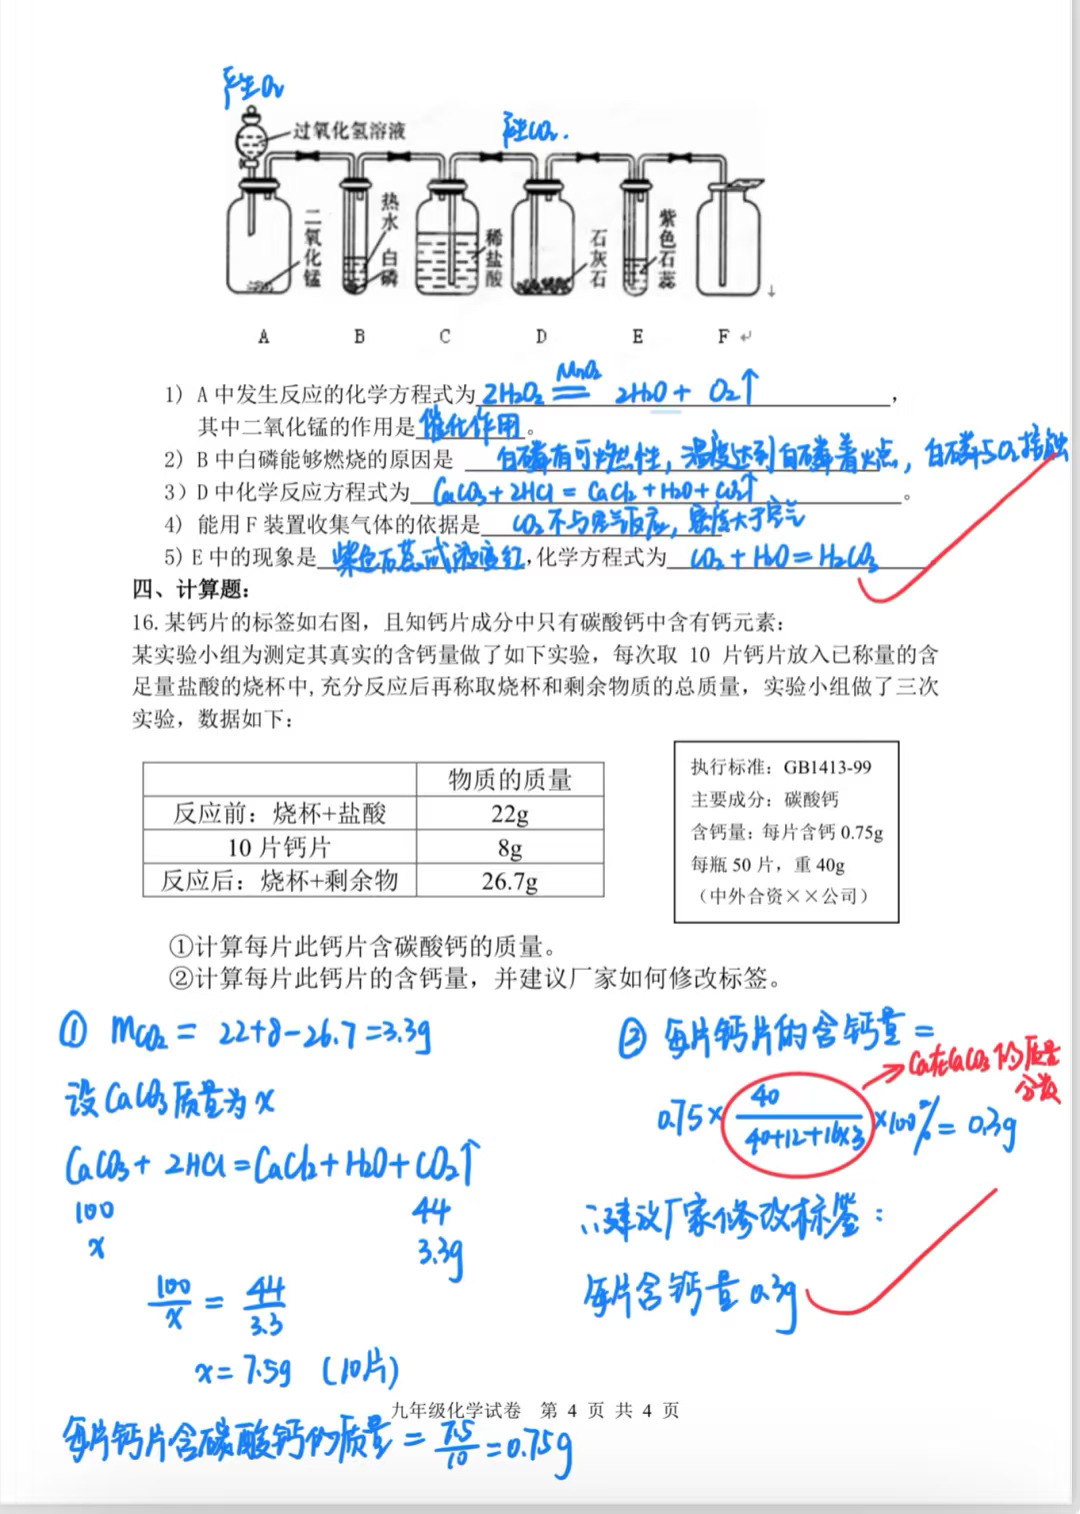 产生O₂
过氧化氢溶液
产生CO₂.
二氧化锰
热水
白磷
稀盐酸
石灰石
紫色石蕊
A B C D E F
1) A 中发生反应的化学方程式为 2H₂O₂ MnO₂ == 2H₂O + O₂↑ ,
其中二氧化锰的作用是 催化作用 。
2) B 中白磷能够燃烧的原因是 白磷有可燃性，温度达到白磷着火点，白磷与O₂接触
3) D 中化学反应方程式为 CaCO₃ + 2HCl = CaCl₂ + H₂O + CO₂↑ 。
4) 能用 F 装置收集气体的依据是 CO₂不与空气反应，密度大于空气
5) E 中的现象是 紫色石蕊试液变红,化学方程式为 CO₂ + H₂O = H₂CO₃
四、计算题:
16. 某钙片的标签如右图，且知钙片成分中只有碳酸钙中含有钙元素:
某实验小组为测定其真实的含钙量做了如下实验，每次取 10 片钙片放入已称量的含
足量盐酸的烧杯中, 充分反应后再称取烧杯和剩余物质的总质量，实验小组做了三次
实验，数据如下:
物质的质量
反应前: 烧杯+盐酸 22g
10 片钙片 8g
反应后: 烧杯+剩余物 26.7g
执行标准: GB1413-99
主要成分: 碳酸钙
含钙量: 每片含钙 0.75g
每瓶 50 片，重 40g
（中外合资××公司）
①计算每片此钙片含碳酸钙的质量。
②计算每片此钙片的含钙量，并建议厂家如何修改标签。
① mCO₂ = 22+8-26.7=3.3g
设CaCO₃质量为x
CaCO₃ + 2HCl = CaCl₂ + H₂O + CO₂↑
100 44
x 3.3g
100/x = 44/3.3
x = 7.5g (10片)
每片钙片含碳酸钙的质量 = 7.5/10 = 0.75g
② 每片钙片的含钙量 =
Ca在CaCO₃的质量
分数
0.75× 40/(40+12+16×3) ×100% = 0.3g
∴建议厂家修改标签:
每片含钙量 0.3g
九年级化学试卷 第 4 页 共 4 页